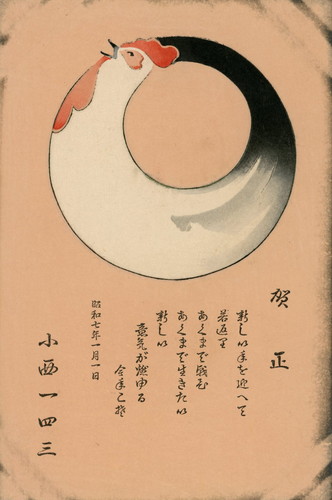 賀正
新しい年を迎へて
若返り
あくまで戦ひ
あくまで生きたい
新しい
意気が燃ゆる
今年こそ
昭和七年一月一日
小西一四三